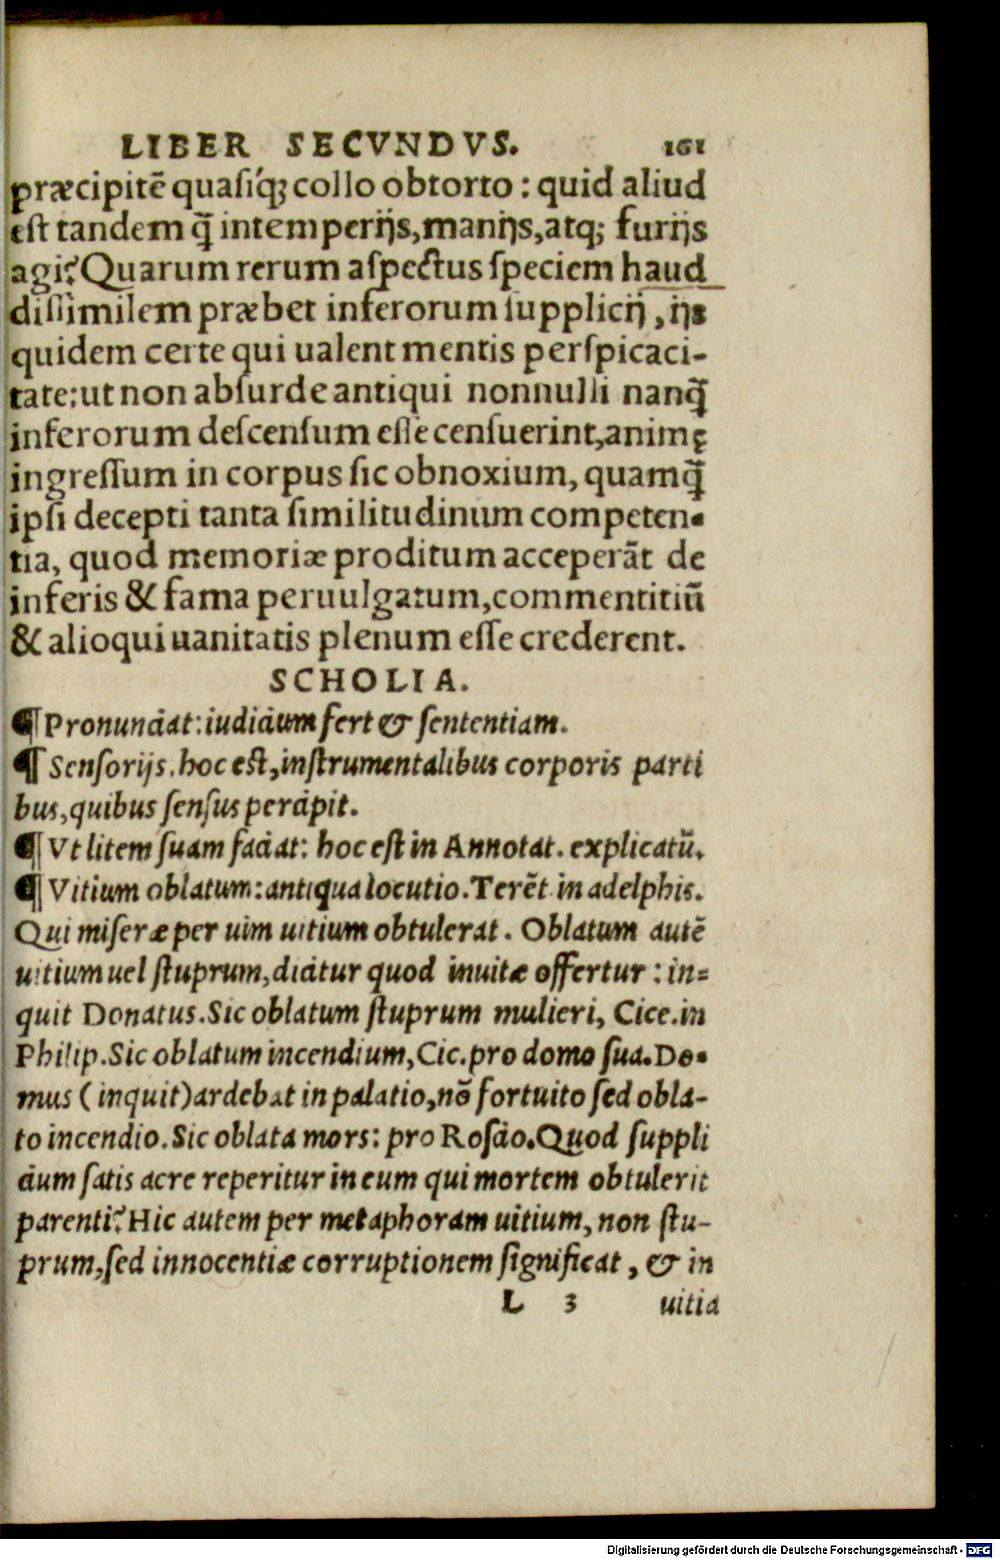 LIBER SECVNDVS. 161
præcipitē quasiq́; collo obtorto : quid aliud
est tandem q̃ intemperijs, manijs, atq; furijs
agi? Quarum rerum aspectus speciem haud
dissimilem præbet inferorum supplicij, ijs
quidem certe qui ualent mentis perspicaci-
tate: ut non absurde antiqui nonnulli nanq̃
inferorum descensum esse censuerint, animę
ingressum in corpus sic obnoxium, quamq̃
ipsi decepti tanta similitudinum competen-
tia, quod memoriæ proditum acceperāt de
inferis & fama peruulgatum, commentitiū
& alioqui uanitatis plenum esse crederent.
SCHOLIA.
¶ Pronunciat: iudicium fert & sententiam.
¶ Sensorijs. hoc est, instrumentalibus corporis parti
bus, quibus sensus percipit.
¶ Vt litem suam faciat: hoc est in Annotat. explicatū.
¶ Vitium oblatum: antiqua locutio. Terēt in adelphis.
Qui miseræ per uim uitium obtulerat. Oblatum autē
uitium uel stuprum, dicitur quod inuitæ offertur : in=
quit Donatus. Sic oblatum stuprum mulieri, Cice. in
Philip. Sic oblatum incendium, Cic. pro domo sua. Do-
mus (inquit) ardebat in palatio, nō fortuito sed obla-
to incendio. Sic oblata mors: pro Roscio. Quod suppli
cium satis acre reperitur in eum qui mortem obtulerit
parenti? Hic autem per metaphoram uitium, non stu-
prum, sed innocentiæ corruptionem significat, & in
L 3 uitia
Digitalisierung gefördert durch die Deutsche Forschungsgemeinschaft - DFG